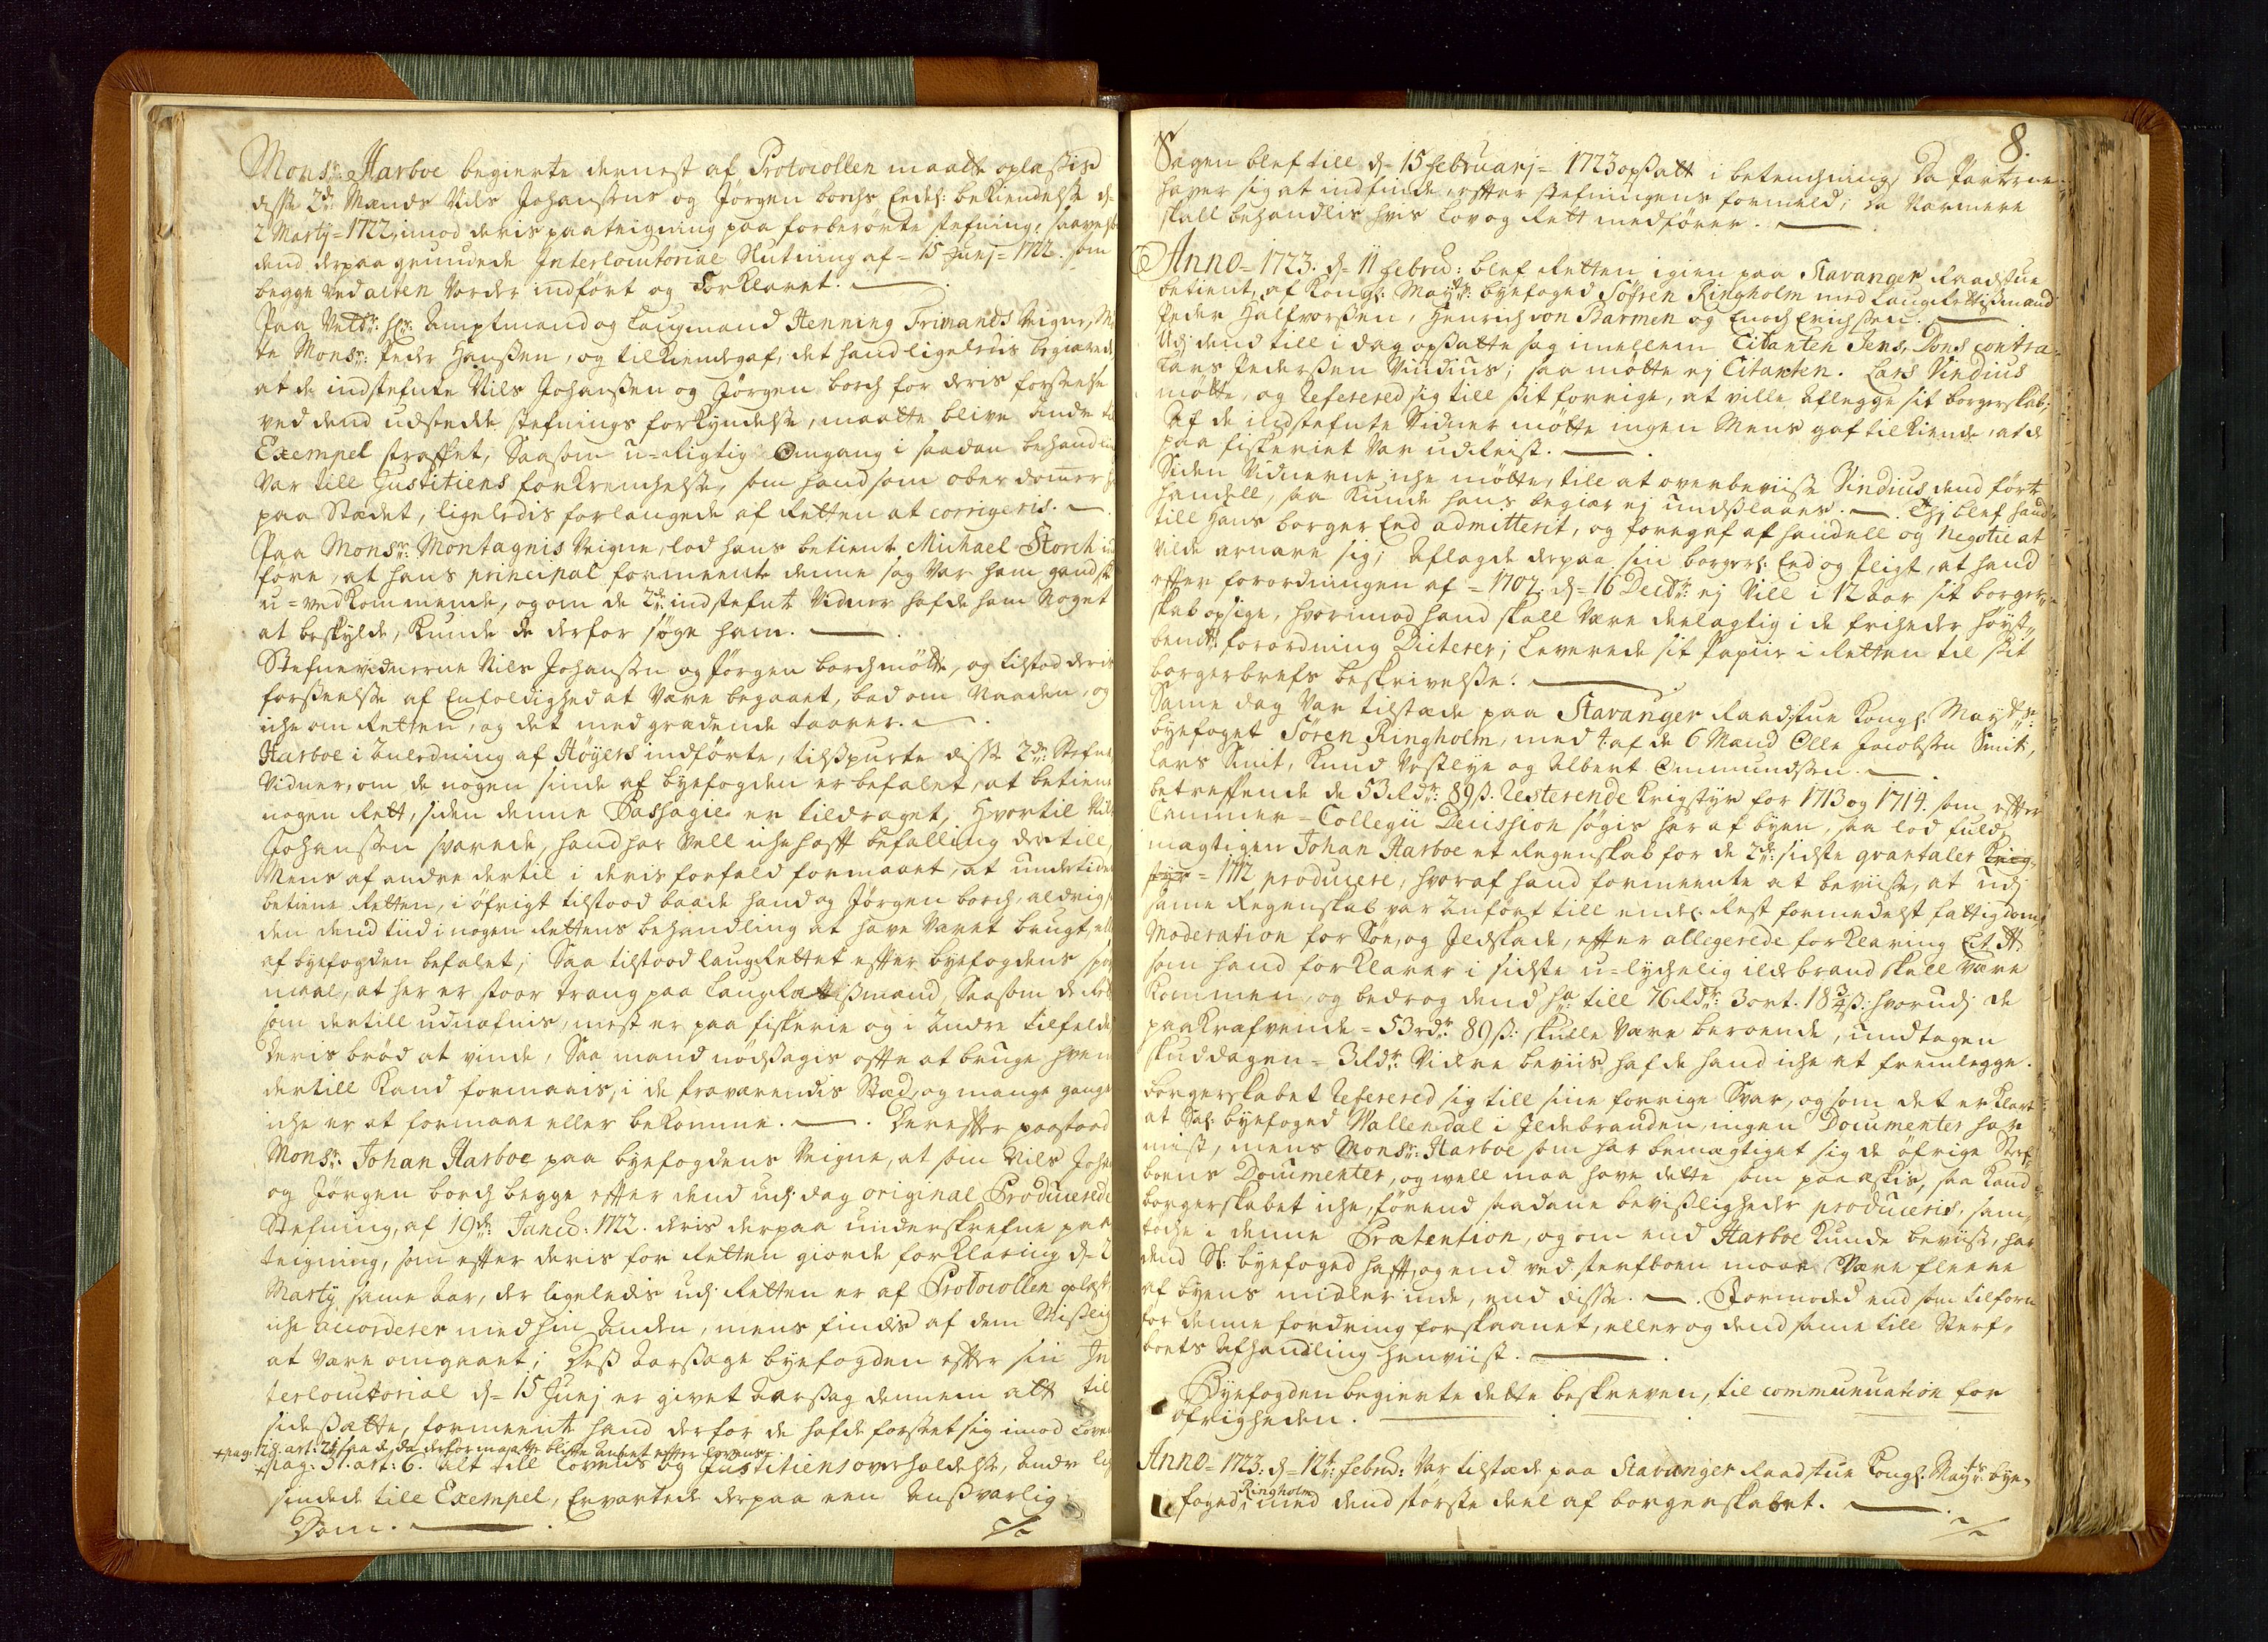 Monsr: Harboe begierte dernest af Protocollen maatte oplæsis
disse 2de: Mænds Niels Johanssens og Jørgen borchs Eedel: bekiendelse d=
2 Marty = 1722, imod deris paateigning paa forberörte stefning, saavelsom
dend derpaa grundede Interlocutorial Slutning af = 15 Junj = 1722. som
begge ved acten vorder indfört og Forklaret.
Paa Velbr: Hr: Amptmand og Laugmand Henning Trimands Veigne, Möt
te Monsr: Peder Hanßen, og tilkiendegaf, det hand ligeledis begiærede
at de indstefnte Nils Johanßen og Jørgen borch for deris forseelse
ved dend udstedde stefnings forkyndelse, maatte blive andre til
Exempel straffet, Saasom u=Rigtig Omgang i saadan behandling
var till Justitiens forkrenchelse, som hand som ober domer her
paa Stædet, ligeledis forlangede af Retten at corrigeris.
Paa Monsr: Montagnis Veigne, lod hans betient Michael Storch ind
före, at hans principal formeente denne sag var ham gandske
u=vedkommende, og om de 2de: indstefnte Vidner hafde ham noget
at beskylde, kunde de derfor söge ham.
Stefnevidnerne Nils Johanssen og Jørgen borch mötte, og tilstod deris
forseelse af Enfoldighed at være begaaet, bad om Naaden, og
iche om Retten, og det med grædende taarer.
Harboe i Anledning af Höyers indförte, tilspurte disse 2de: Stefne
Vidner, om de nogen sinde af byefogden er befalet, at betiene
nogen Rett, siden denne Passagie er tildraget, Hvortil Nils
Johanssen svarede, hand har vell iche hafft befalling dertill,
Mens af andre dertil i deris forfald formaaet, at undertiden
betiene Retten, i öfrigt tilstood baade hand og Jørgen borch, aldrig si
den dend tiid i nogen Rettens behandling at have været brugt, ell
af byefogden befalet; Saa tilstood laugRettet efter byefogdens spörs
maal, at her er stoor trang paa LaugRettismænd, Saasom de Folk
som dertill udnæfnis, mest er paa fiskerie og i andre tilfelde
deris bröd at vinde, Saa mand nödsagis ofte at bruge hvem
dertill kand formaais, i de fraværendis Stæd, og mange gange
iche er at formaae eller bekomme. Derefter paastood
Monsr: Johan Harboe paa byefogdens Veigne, at som Nils Joha
og Jørgen borch begge efter dend udj dag original Producerede
Stefning, af 19de: Janrj: 1722. deris derpaa underskrefne paa
teigning, som efter deris for Retten giorde forklaring d= 2
Marty same Aar, der ligeledis udj Retten er af Protocollen oplæst,
iche accorderer med hin Anden, mens findis af dem Misselig
at være omgaaet; Deß Aarsage byefogden efter sin In
terlocutorial d= 15 Junj er givet Aarsag dennem att til
side sætte, formeente hand derfor de hafde forseet sig imod Loven
+pag: 121. art: 24 saa de da derfor maatte blifve anseet efter lovens
+pag: 51. art: 6. alt till Lovens og Justitiens overholdelse, Andre lige
sindede till Exempel, Ervartede derpaa een Ansvarlig
Dom.
8.
Sagen blef till d= 15 Februarj = 1723 opsatt i betenchning, da Parterne
haver sig at indfinde efter stefningens formeld, da nærmere
skall behandlis hvis Lov og Rett medförer.
Anno = 1723. d= 11 Februa: blef Retten igien paa Stavanger Raadstue
betient, af Kongl: Mayts: byefoged Söfren Ringholm med LaugRettismænd
Peder Halfvorßen, Henrich von Barmen og Enoch Erichßen.
Udj dend till i dag opsatte sag imellem Citanten Jens Dons contra
Lars Pederßen Vindius; saa mötte ej Citanten. Lars Vindius
mötte, og Refererede sig till sit forrige, at ville aflegge sit borgerskab;
Af de indstefnte Vidner mötte ingen Mens gaf tilkiende, at de
paa fiskeriet var udreist.
Siden Vidnerne iche mötte, till at overbeviise Vindius dend förte
handell, saa kunde hans begiær ej undslaaes. Thi blef hand
till Hans borger Eed admitterit, og foregaf af handell og Negotie at
vilde ernære sig; Aflagde derpaa sin borgerl: Eed og Pligt, at hand
efter forordningen af = 1707. d= 16 Decbr: ej vill i 12 Aar sit borger
skab opsige, hvorimod hand skall være deelagtig i de friheder höyst
bemte: forordning Dicterer; Leverede sit Papiir i Retten til sit
borgerbrefs beskrivelse.
Same dag var tilstæde paa Stavanger Raadstue Kongl: Mayts:
byefoget Sören Ringholm, med 4 af de 6 Mænd Olle Jacobßen Smit,
Lars Smit, Knud Vestlye og Albert Ommundsen.
betreffende de 53 Rdr: 89ß. Resterende Krigstyr for 1713 og 1714. som efter
Cammer = Collegii Decission sögis her af byen, saa lod fuld
mægtigen Johan Harboe et Regenskab for de 2de: sidste qvartaler Krig
styr = 1712 producere, hvoraf hand formeente at beviise, at udj
same Regenskab var Anfört till endel: Rest formedelst fattigdom,
Moderation for Söe, og Ildskade, efter allegerede forklaring Lit A.
som hand forklarer i sidste u=lychelig ildebrand skall være
kommen, og bedrog dend sa: till 76 Rdr: 3 ort. 18 3/4 ß: hvorudj de
paakrafvende = 53 rdr: 89ß: skulle være beroende, undtagen
skuddagen = 3 Rdr: Videre beviis hafde hand iche at fremlegge.
Borgerskabet Refererede sig till sine forrige Svar, og som det er klart
at Sal: byefoged Wallendal i Ildebranden, ingen Documenter har
mist, mens Monsr: Harboe som har bemægtiget sig de öfrige Sterf
boens Documenter, og well maa have dette som paaæskis, saa kand
borgerskabet iche, förend saadane bevisligheder produceris, sam
töche i denne Prætention, og om end Harboe kunde beviise, har
dend Sl: byefoged hafft, og end ved sterfboen maae være fleere
af byens midler inde, end disse. Formoded end som tilforn
for denne fordring forskaanet, eller og dend same till Sterf
boets Afhandling henviist.
Byefogden begierte dette beskreven, til communication for
öfrigheden.
Anno = 1723: d= 12te: Februa: var tilstæde paa Stavanger Raadstue Kongl: Mayts: bye
foged Ringholm med dend störste deel af borgerskabet.